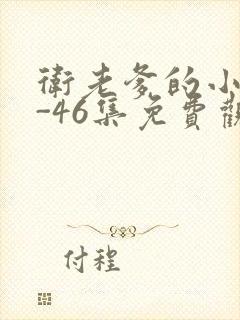 衛老爹的小
-46集免費觀
付程